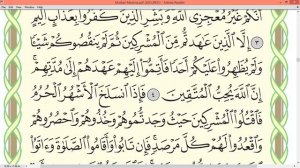 Mushaf Madina.pdf (SECURED) - Adobe Reader
أَنَّكُمْ غَيْرُ مُعْجِزِي ٱللَّهِ وَبَشِّرِ ٱلَّذِينَ كَفَرُوا۟ بِعَذَابٍ أَلِيمٍ
٣ إِلَّا ٱلَّذِينَ عَٰهَدتُّم مِّنَ ٱلْمُشْرِكِينَ ثُمَّ لَمْ يَنقُصُوكُمْ شَيْـًٔا
وَلَمْ يُظَٰهِرُوا۟ عَلَيْكُمْ أَحَدًا فَأَتِمُّوٓا۟ إِلَيْهِمْ عَهْدَهُمْ إِلَىٰ مُدَّتِهِمْ
إِنَّ ٱللَّهَ يُحِبُّ ٱلْمُتَّقِينَ ٤ فَإِذَا ٱنسَلَخَ ٱلْأَشْهُرُ ٱلْحُرُمُ
فَٱقْتُلُوا۟ ٱلْمُشْرِكِينَ حَيْثُ وَجَدتُّمُوهُمْ وَخُذُوهُمْ وَٱحْصُرُوهُمْ
وَٱقْعُدُوا۟ لَهُمْ كُلَّ مَرْصَدٍ فَإِن تَابُوا۟ وَأَقَامُوا۟ ٱلصَّلَوٰةَ وَءَاتَوُا۟